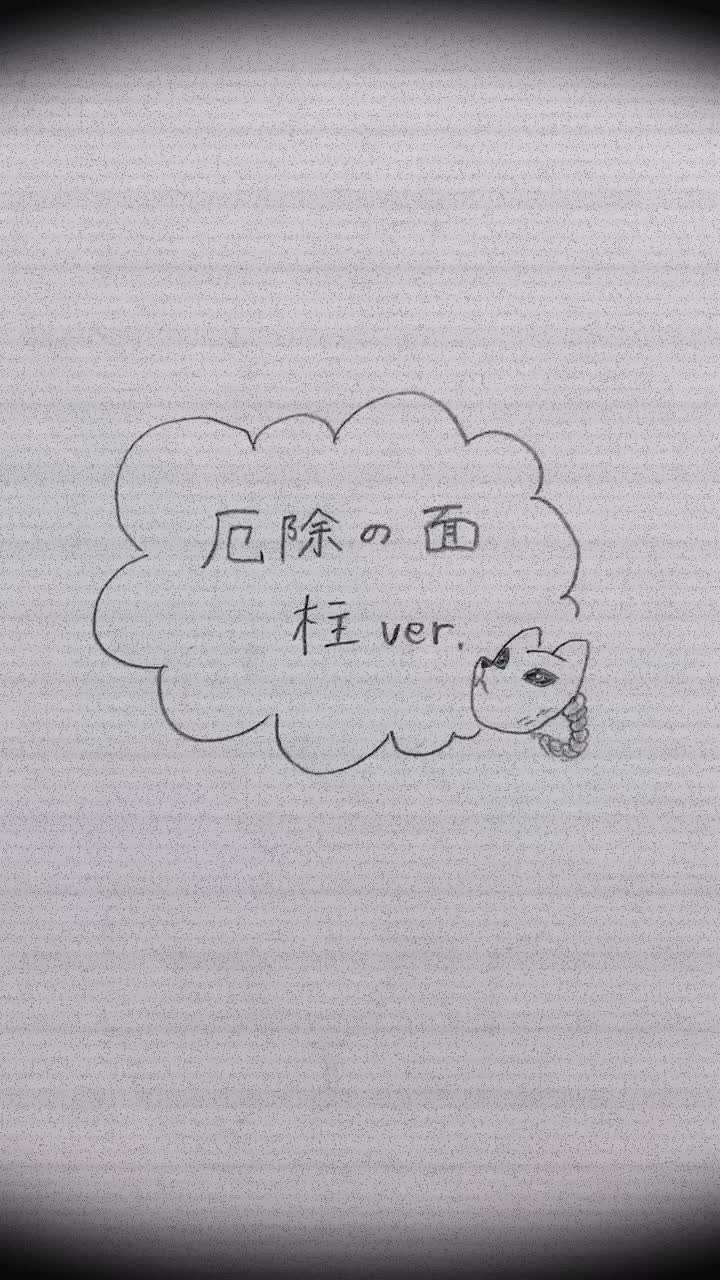 厄除の面
柱 ver.